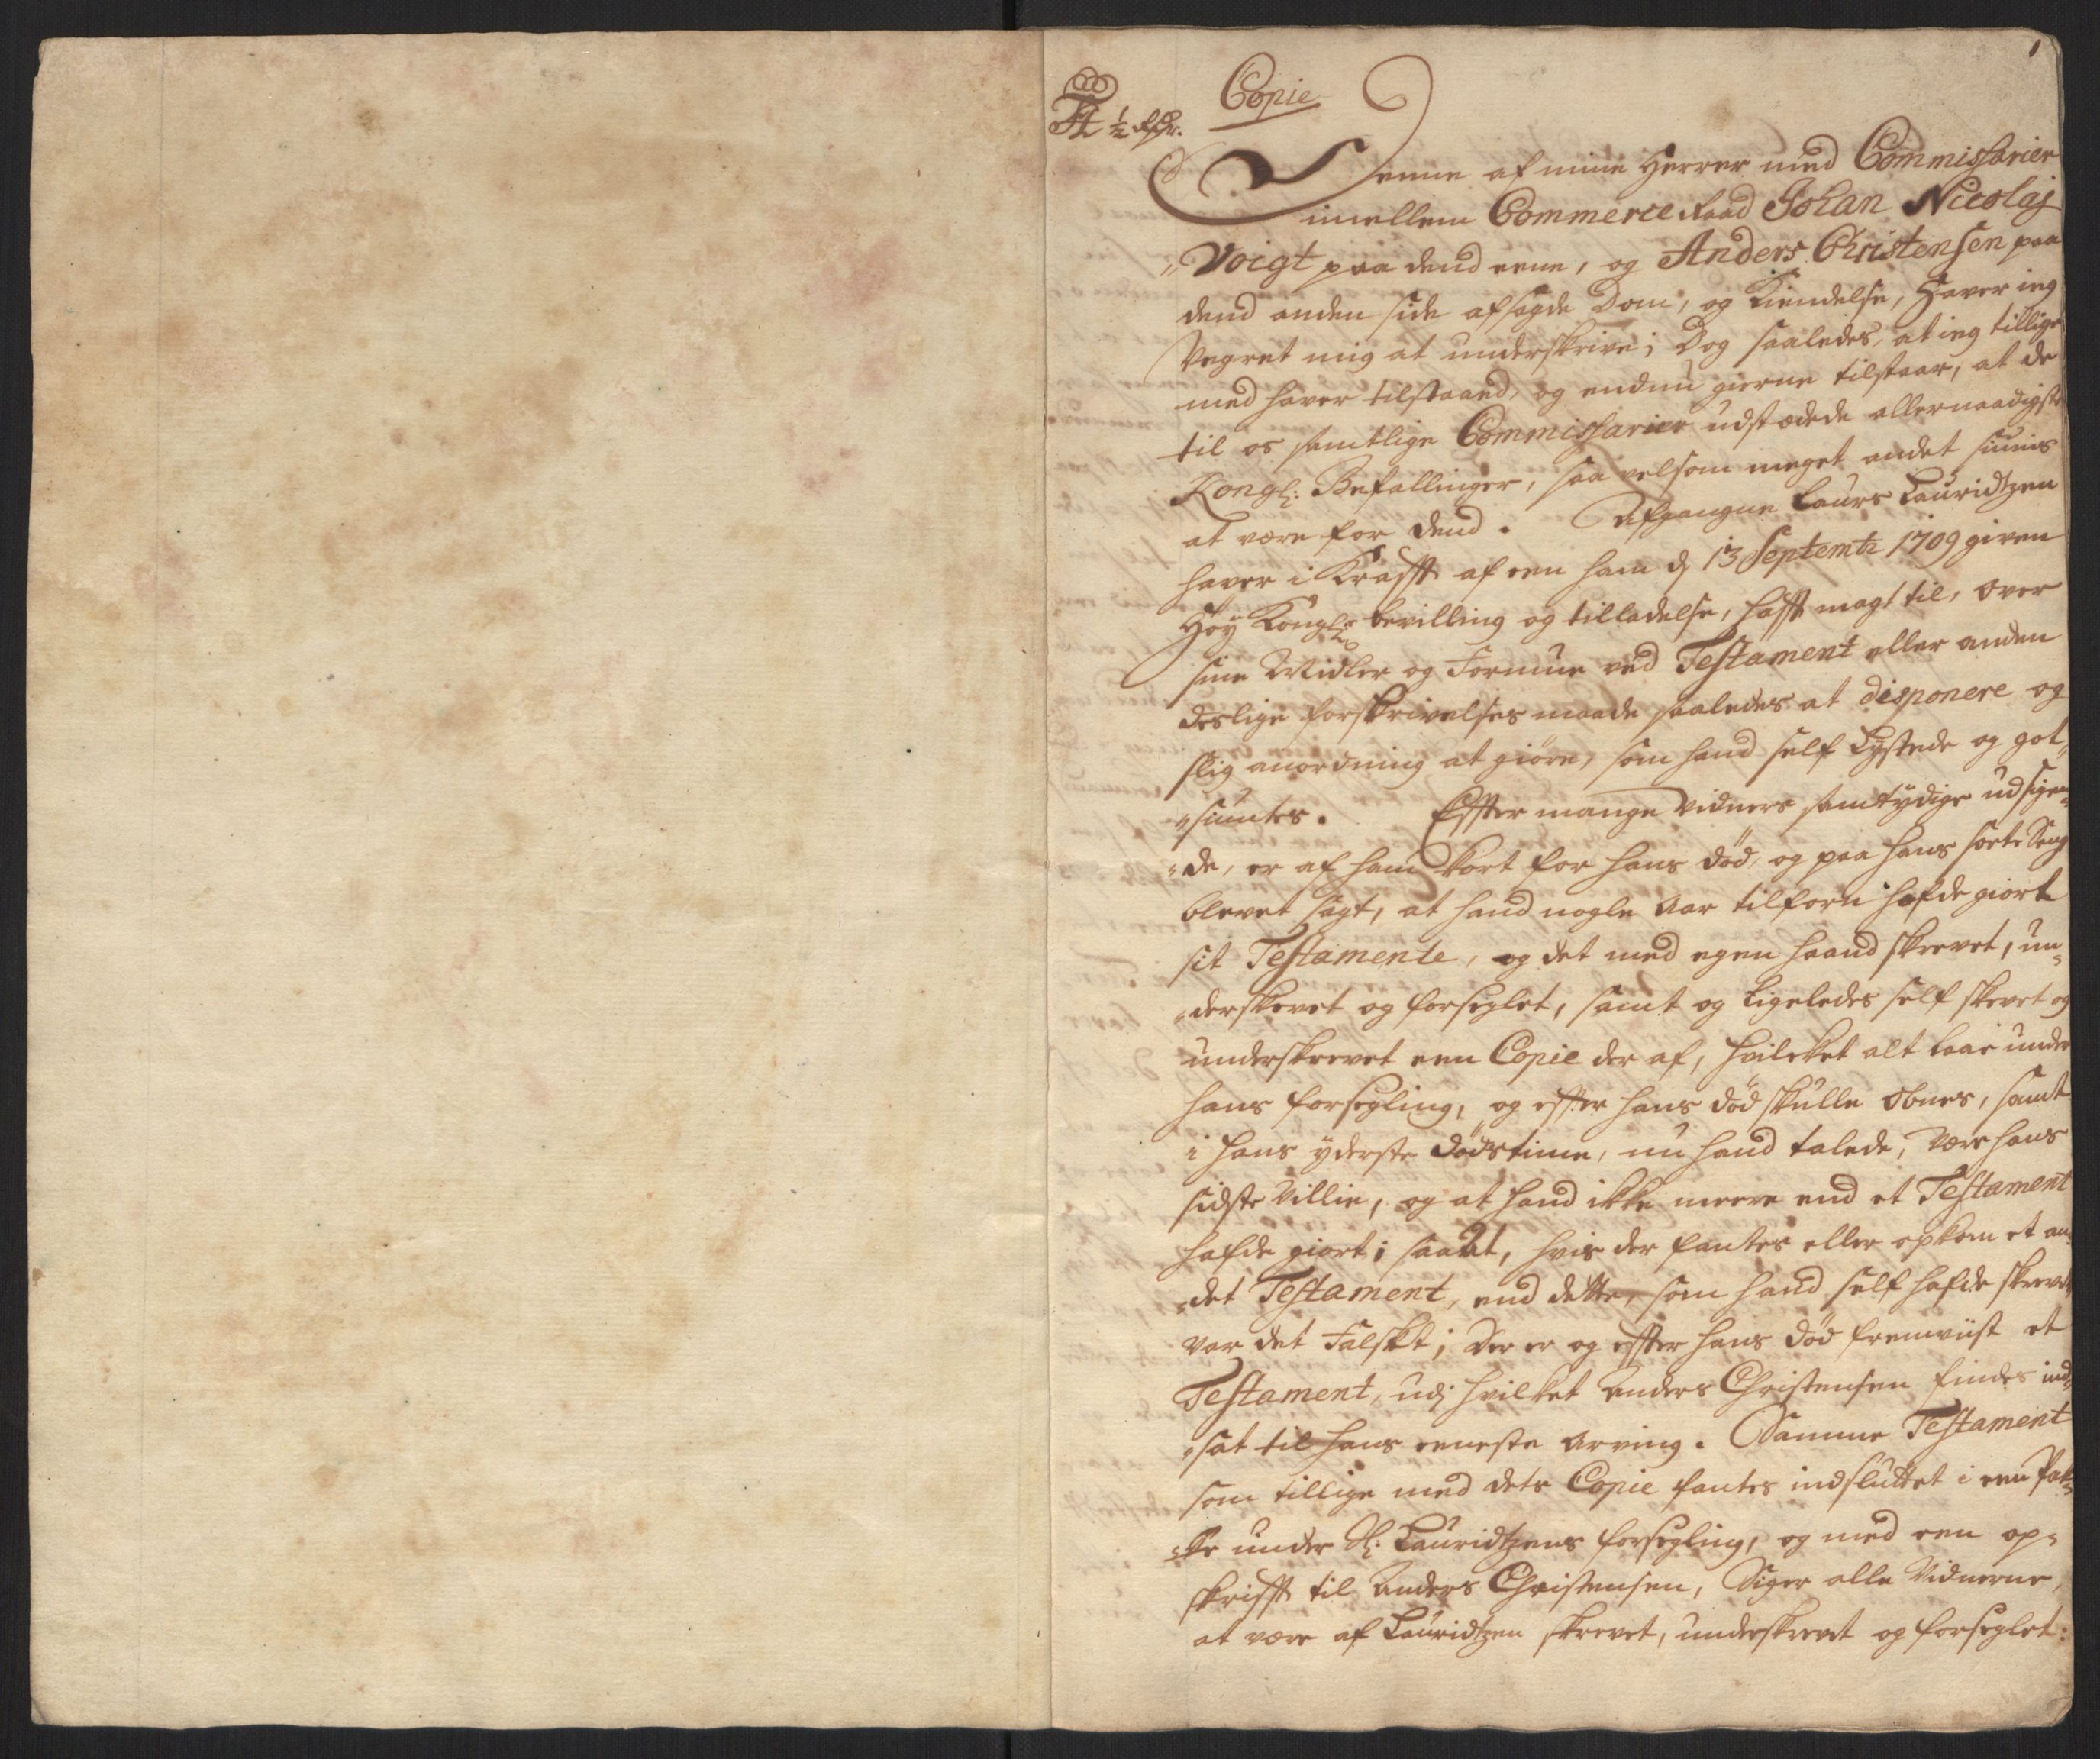 1
Copie
½ Rdr.
Denne af mine Herrer med Commissarier
imellem Commerce Raad Johan Nicolaj
„Voigt paa dend eene, og Anders Christensen paa
dend anden side afsagde Dom, og Kiendelse, Haver ieg
Vegret mig at underskrive; Dog saaledes, at ieg tillige
med haver tilstaaed, og endnu gierne tilstaar, at de
til os samtlige Commissarier udstædede allernaadigste
Kongl: Befallinger, saa velsom meget andet siunis
at være for dend. Afgangne Laurs Lauridtzen
haver i Krafft af een ham d 13 Septembr 1709 given
Høy Kongl: bevilling og tilladelse, hafft magt til, over
sine Midler og Formue ved Testament eller anden
deslige forskrivelses maade saaledes at disponere og
slig anordning at giøre, som hand self Lystede og got„
„siuntes. Effter mange Vidners samtydige udsigen„
„de, er af ham kort for hans død, og paa hans soete Seng
blevet sagt, at hand nogle Aar tilforn hafde giort
sit Testamente, og det med egen haand skrevet, un„
„derskrevet og forseglet, samt og ligeledes self skrevet og
underskrevet een Copie der af, hvilcket alt laae under
hans forsegling, og effter hans død skulle obnes, samt
i hans yderste dødstime, nu hand talede, være hans
sidste Villie, og at hand ikke meere end et Testament
hafde giort; saa at, hvis der fantes eller opkom et an„
„det Testament, end dette, som hand self hafde skrevet
var det Falskt; Der er og effter hans død fremviist et
Testament, udj hvilket Anders Christensen findes ind„
„sat til hans eeneste Arving. Samme Testament
som tillige med dets Copie fantes indsluttet i een Pak„
„ke under Sl: Lauridtzens forsegling, og med een op„
skrifft til Anders Christensen, Siger alle Vidnerne,
at være af Lauridtzen skrevet, underskrevet og forseglet: